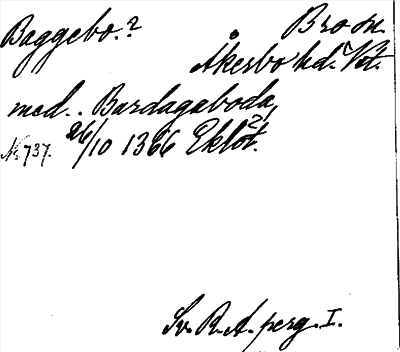 Baggebo.? Bro sn.
Åkerbo hd. Vstm.
med.. Bardagaboda,
No 737. 26/10 1366 Eklöt.
Sv. R. A. perg. I.